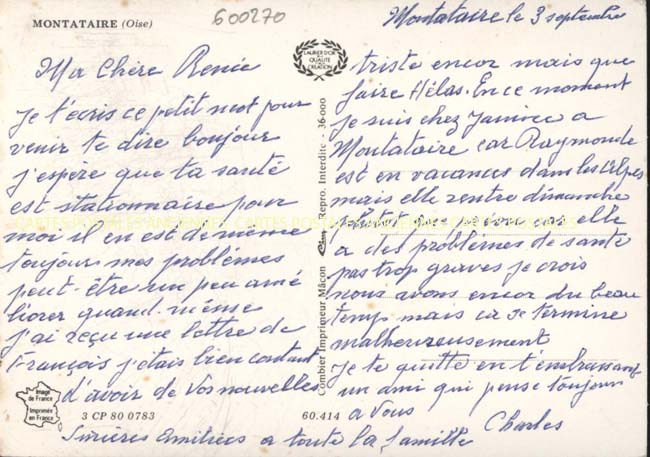 MONTATAIRE (Oise)
600270
Montataire le 3 septembre
LAURIER D'OR
DE LA
QUALITÉ
CRÉATION
Ma Chère Renée
Je t'écris ce petit mot pour
venir te dire bonjour
j'espère que ta santé
est stationnaire pour
moi il en est de même
toujours mes problèmes
peut-être un peu amé
liorer quand même
j'ai reçu une lettre de
François j'étais bien contant
d'avoir de Vos nouvelles
triste encor mais que
faire Hélas. En ce moment
je suis chez Janine a
Montataire car Raymonde
est en vacances dans les Alpes
mais elle rentre dimanche
plutôt que prévu car elle
a des problèmes de santé
pas trop graves je crois
nous avons encor du beau
temps mais ça se termine
malheureusement
Je te quitte en t'embrassant
un ami qui pense toujours
a Vous
Charles
Sincères Amitiées a toute la famille
Combier Imprimeur Mâcon
Repro. Interdite - 36-000
Image
de France
Imprimée
en France
3 CP 80 0783
60.414